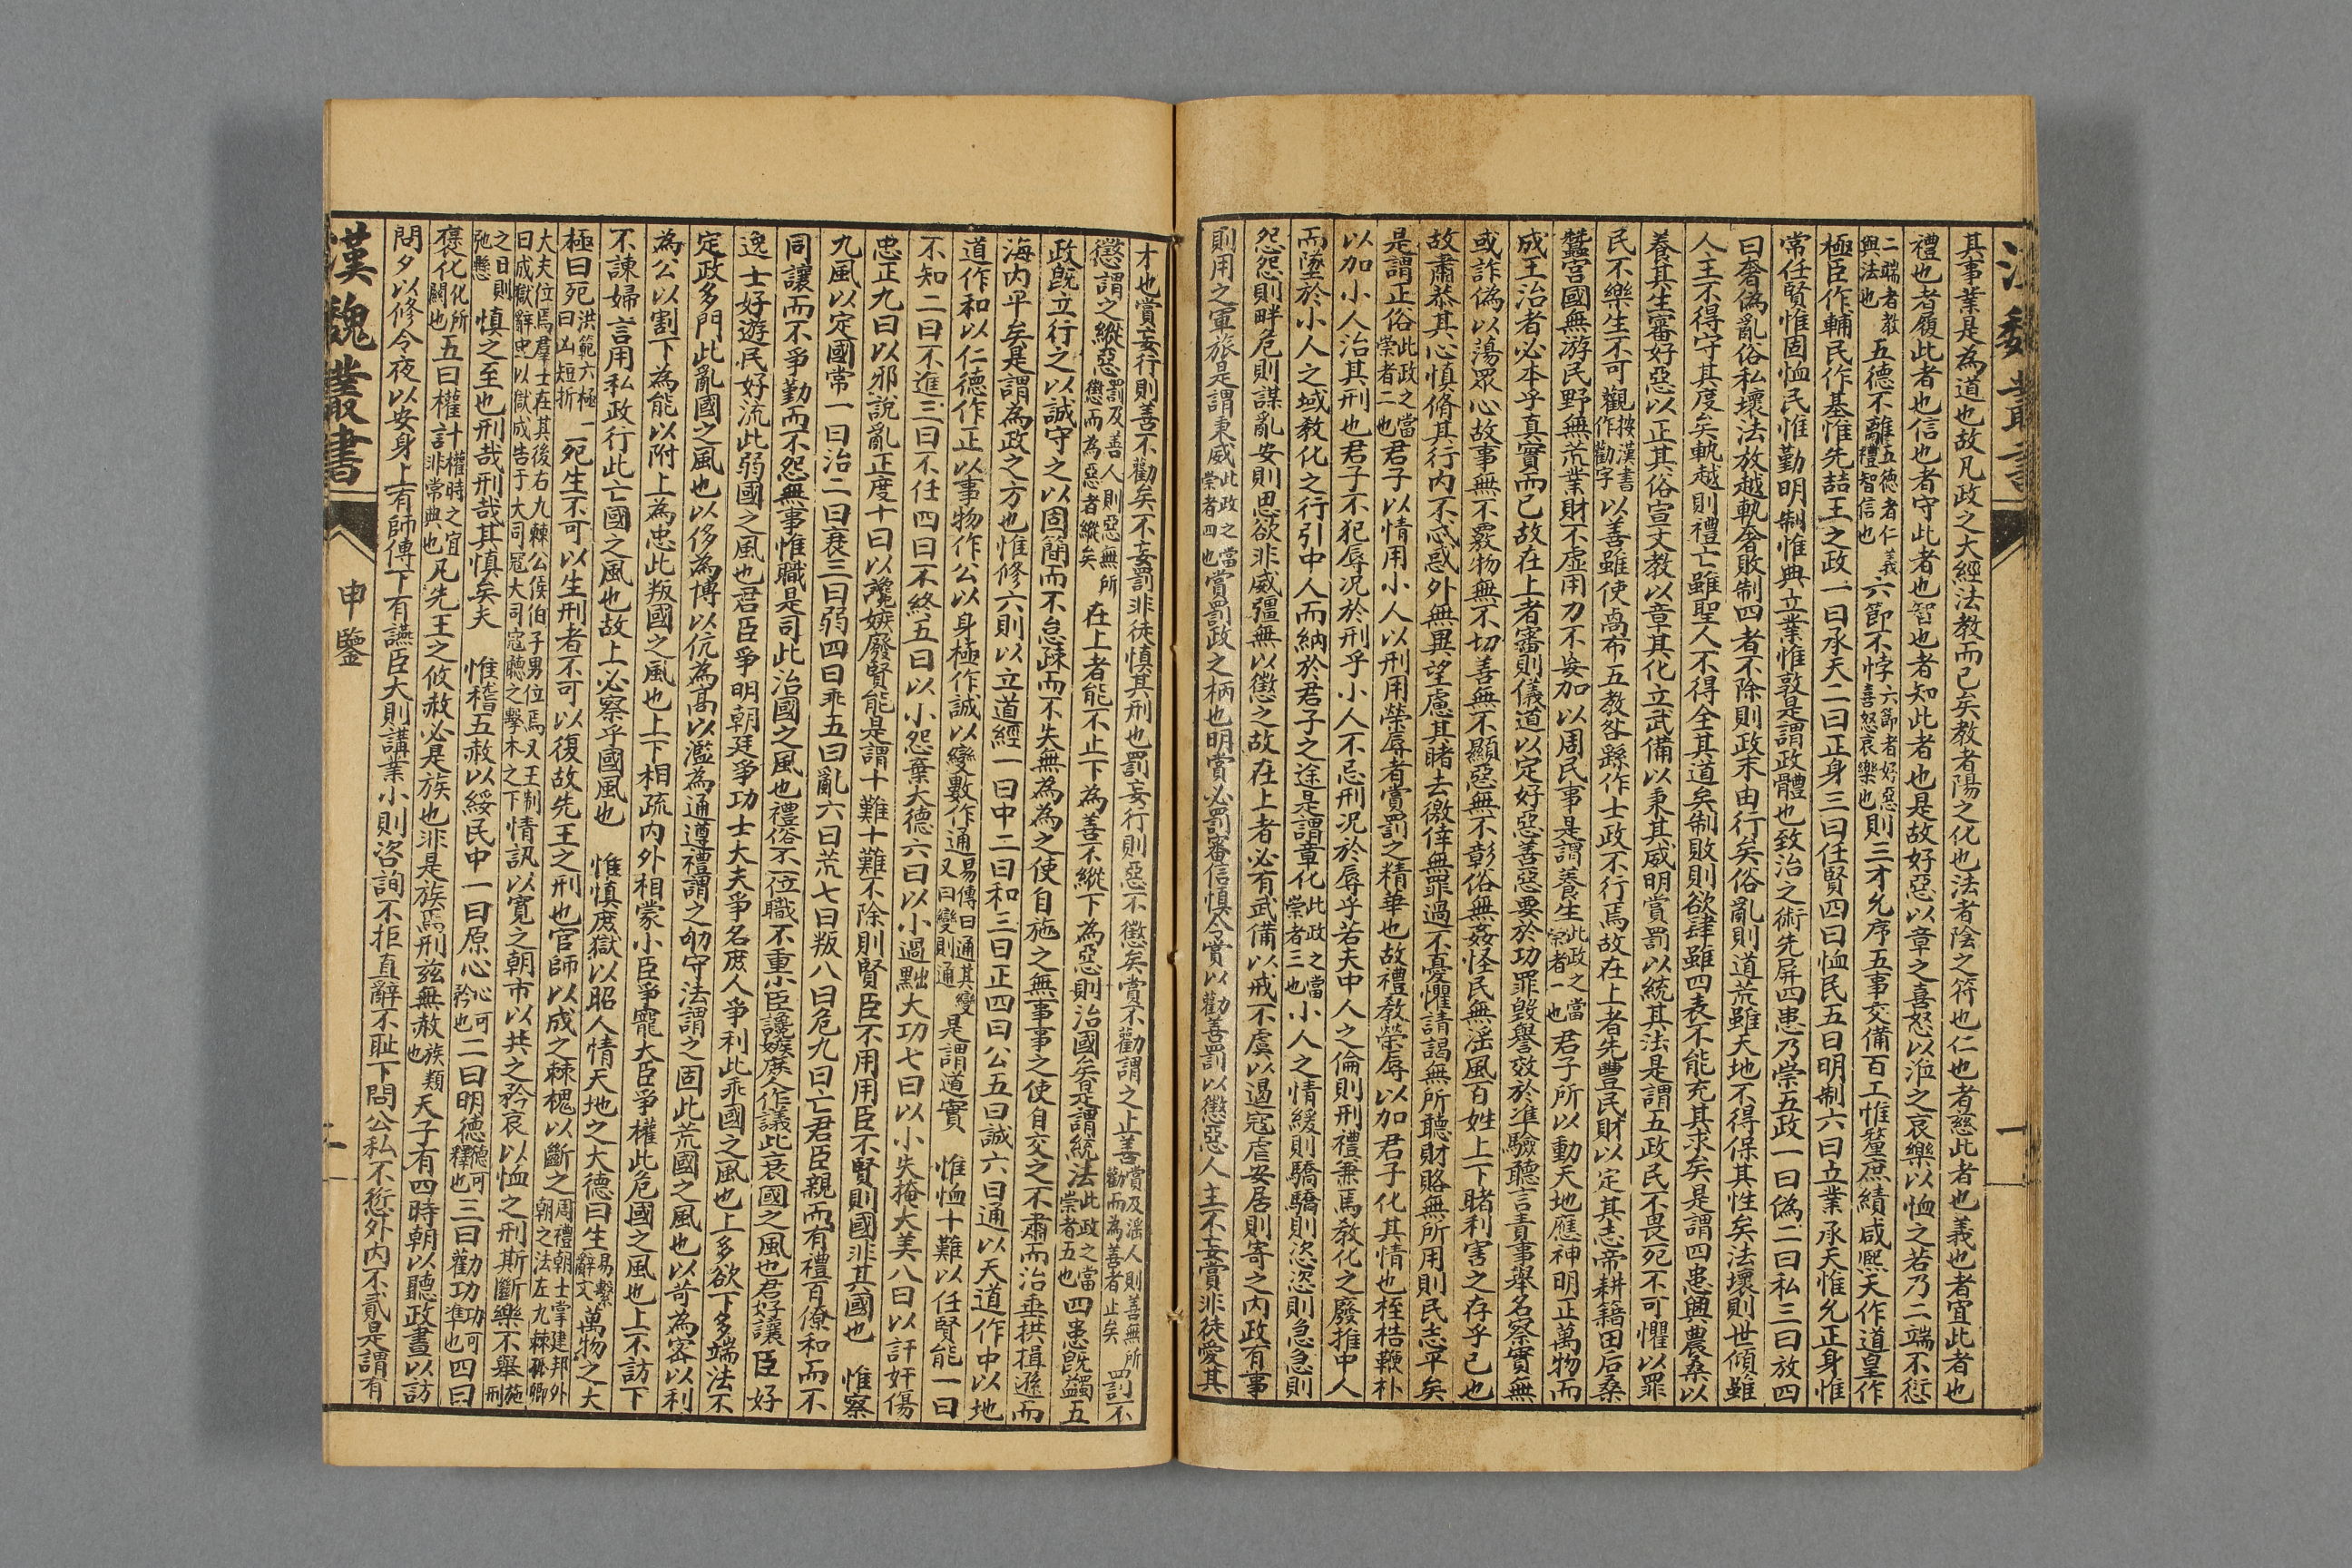 漢魏叢書
一
其事業是為道也故凡政之大經法教而已矣教者陽之化也法者陰之符也仁也者慈此者也義也者宜此者也
禮也者履此者也信也者守此者也智也者知此者也是故好惡以章之喜怒以涖之哀樂以恤之若乃二端不愆
二端者教與法也五德不離五德者仁義禮智信也六節不悖六節者好惡喜怒哀樂也則三才允序五事交備百工惟釐庶績咸熙天作道皇作
極臣作輔民作基惟先喆王之政一曰承天二曰正身三曰任賢四曰恤民五曰明制六曰立業承天惟允正身惟
常任賢惟固恤民惟勤明制惟典立業惟敦是謂政體也致治之術先屏四患乃崇五政一曰偽二曰私三曰放四
曰奢偽亂俗私壞法放越軌奢敗制四者不除則政末由行矣俗亂則道荒雖天地不得保其性矣法壞則世傾雖
人主不得守其度矣軌越則禮亡雖聖人不得全其道矣制敗則欲肆雖四表不能充其求矣是謂四患興農桑以
養其生審好惡以正其俗宣文教以章其化立武備以秉其威明賞罰以統其法是謂五政民不畏死不可懼以罪
民不樂生不可觀按漢書作勸字以善雖使卨布五教咎繇作士政不行焉故在上者先豐民財以定其志帝耕籍田后桑
蠶宮國無游民野無荒業財不虛用力不妄加以周民事是謂養生此政之當崇者一也君子所以動天地應神明正萬物而
成王治者必本乎真實而已故在上者審則儀道以定好惡善惡要於功罪毀譽效於準驗聽言責事舉名察實無
或詐偽以蕩眾心故事無不覈物無不切善無不顯惡無不彰俗無姦怪民無淫風百姓上下睹利害之存乎己也
故肅恭其心慎脩其行內不忒惑外無異望慮其睹去徼倖無罪過不憂懼請謁無所聽財賂無所用則民志平矣
是謂正俗此政之當崇者二也君子以情用小人以刑用榮辱者賞罰之精華也故禮教榮辱以加君子化其情也桎梏鞭朴
以加小人治其刑也君子不犯辱況於刑乎小人不忌刑況於辱乎若夫中人之倫則刑禮兼焉教化之廢推中人
而墜於小人之域教化之行引中人而納於君子之途是謂章化此政之當崇者三也小人之情緩則驕驕則恣恣則急急則
怨怨則畔危則謀亂安則思欲非威彊無以懲之故在上者必有武備以戒不虞以遏寇虐安居則寄之內政有事
則用之軍旅是謂秉威此政之當崇者四也賞罰政之柄也明賞必罰審信慎令賞以勸善罰以懲惡人主不妄賞非徒愛其
才也賞妄行則善不勸矣不妄罰非徒慎其刑也罰妄行則惡不懲矣賞不勸謂之止善賞及淫人則善無所勸而為善者止矣罰不
懲謂之縱惡罰及善人則惡無所懲而為惡者縱矣在上者能不止下為善不縱下為惡則治國矣是謂統法此政之當崇者五也四患既蠲五
政既立行之以誠守之以固簡而不怠疎而不失無為為之使自施之無事事之使自交之不肅而治垂拱揖遜而
海內平矣是謂為政之方也惟修六則以立道經一曰中二曰和三曰正四曰公五曰誠六曰通以天道作中以地
道作和以仁德作正以事物作公以身極作誠以變數作通易傳曰通其變又曰變則通是謂道實　惟恤十難以任賢能一曰
不知二曰不進三曰不任四曰不終五曰以小怨棄大德六曰以小過黜大功七曰以小失掩大美八曰以訐奸傷
忠正九曰以邪說亂正度十曰以讒嫉廢賢能是謂十難十難不除則賢臣不用用臣不賢則國非其國也　惟察
九風以定國常一曰治二曰衰三曰弱四曰乖五曰亂六曰荒七曰叛八曰危九曰亡君臣親而有禮百僚和而不
同讓而不爭勤而不怨無事惟職是司此治國之風也禮俗不一位職不重小臣讒嫉庶人作議此衰國之風也君好讓臣好
逸士好遊民好流此弱國之風也君臣爭明朝廷爭功士大夫爭名庶人爭利此乖國之風也上多欲下多端法不
定政多門此亂國之風也以侈為博以伉為高以濫為通遵禮謂之劬守法謂之固此荒國之風也以苛為密以利
為公以割下為能以附上為忠此叛國之風也上下相疏內外相蒙小臣爭寵大臣爭權此危國之風也上不訪下
不諫婦言用私政行此亡國之風也故上必察乎國風也　惟慎庶獄以昭人情天地之大德曰生易繫辭文萬物之大
極曰死洪範六極一曰凶短折死生不可以生刑者不可以復故先王之刑也官師以成之棘槐以斷之周禮朝士掌建邦外朝之法左九棘孤卿
大夫位焉羣士在其後右九棘公侯伯子男位焉又王制曰成獄辭史以獄成告于大司寇大司寇聽之棘木之下情訊以寬之朝市以共之矜哀以恤之刑斯斷樂不舉施刑
之日則弛懸慎之至也刑哉刑哉其慎矣夫　惟稽五赦以綏民中一曰原心心可矜也二曰明德德可釋也三曰勸功功可準也四曰
褒化化所關也五曰權計權時之宜計非常典也凡先王之攸赦必是族也非是族焉刑茲無赦族類也天子有四時朝以聽政晝以訪
問夕以修令夜以安身上有師傅下有讌臣大則講業小則咨詢不拒直辭不恥下問公私不愆外內不貳是謂有
漢魏叢書
申鑒